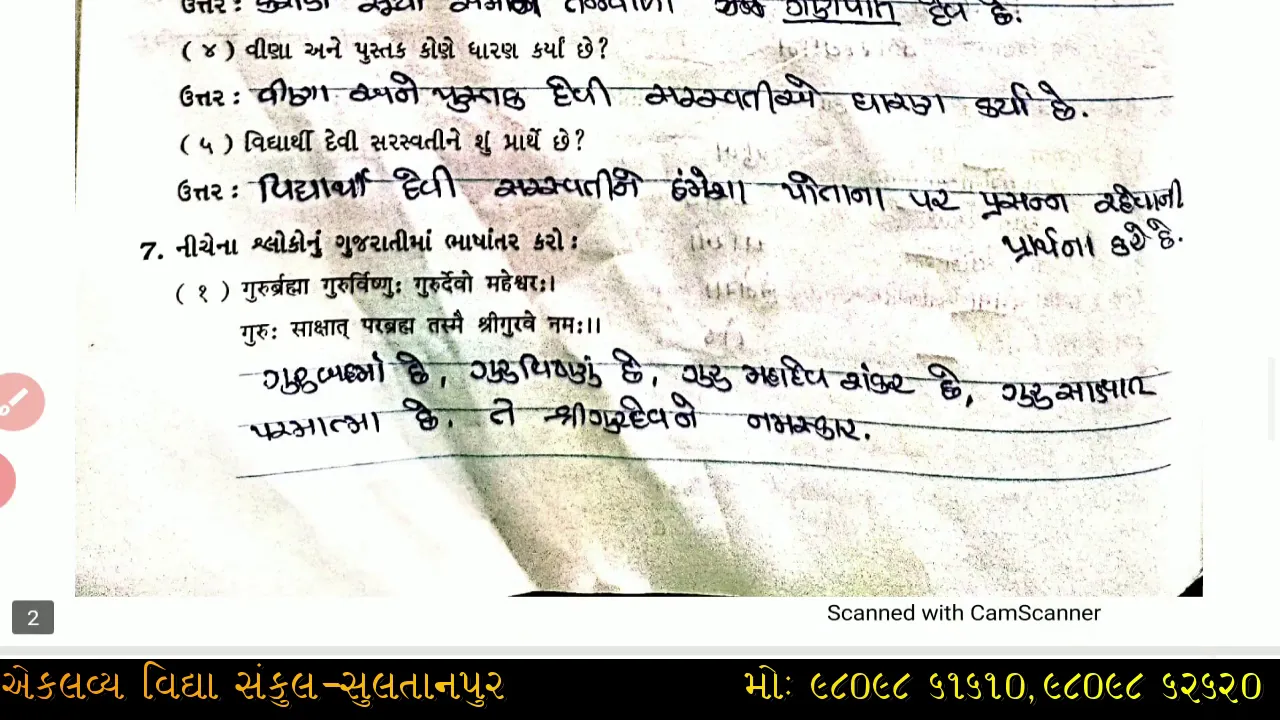 ઉત્તર: ગણપતિ દેવ છે.
( ૪ ) વીણા અને પુસ્તક કોણે ધારણ કર્યાં છે?
ઉત્તર: વીણા અને પુસ્તક દેવી સરસ્વતીએ ધારણ કર્યા છે.
( ૫ ) વિદ્યાર્થી દેવી સરસ્વતીને શું પ્રાર્થે છે?
ઉત્તર: વિદ્યાર્થી દેવી સરસ્વતીને હંમેશા પોતાના પર પ્રસન્ન રહેવાની
પ્રાર્થના કરે છે.
7. નીચેના શ્લોકોનું ગુજરાતીમાં ભાષાંતર કરો:
( १ ) गुरुर्ब्रह्मा गुरुर्विष्णुः गुरुर्देवो महेश्वरः।
गुरुः साक्षात् परब्रह्म तस्मै श्रीगुरवे नमः।।
ગુરુબ્રહ્મા છે, ગુરુવિષ્ણું છે, ગુરુ મહાદેવ શંકર છે, ગુરુ સાક્ષાત
પરમાત્મા છે. તે શ્રીગુરુદેવને નમસ્કાર.
2
Scanned with CamScanner
એકલવ્ય વિદ્યા સંકુલ-સુલતાનપુર
મો: ૯૮૦૯૮ ૬૧૬૧૦, ૯૮૦૯૮ ૬૨૬૨૦